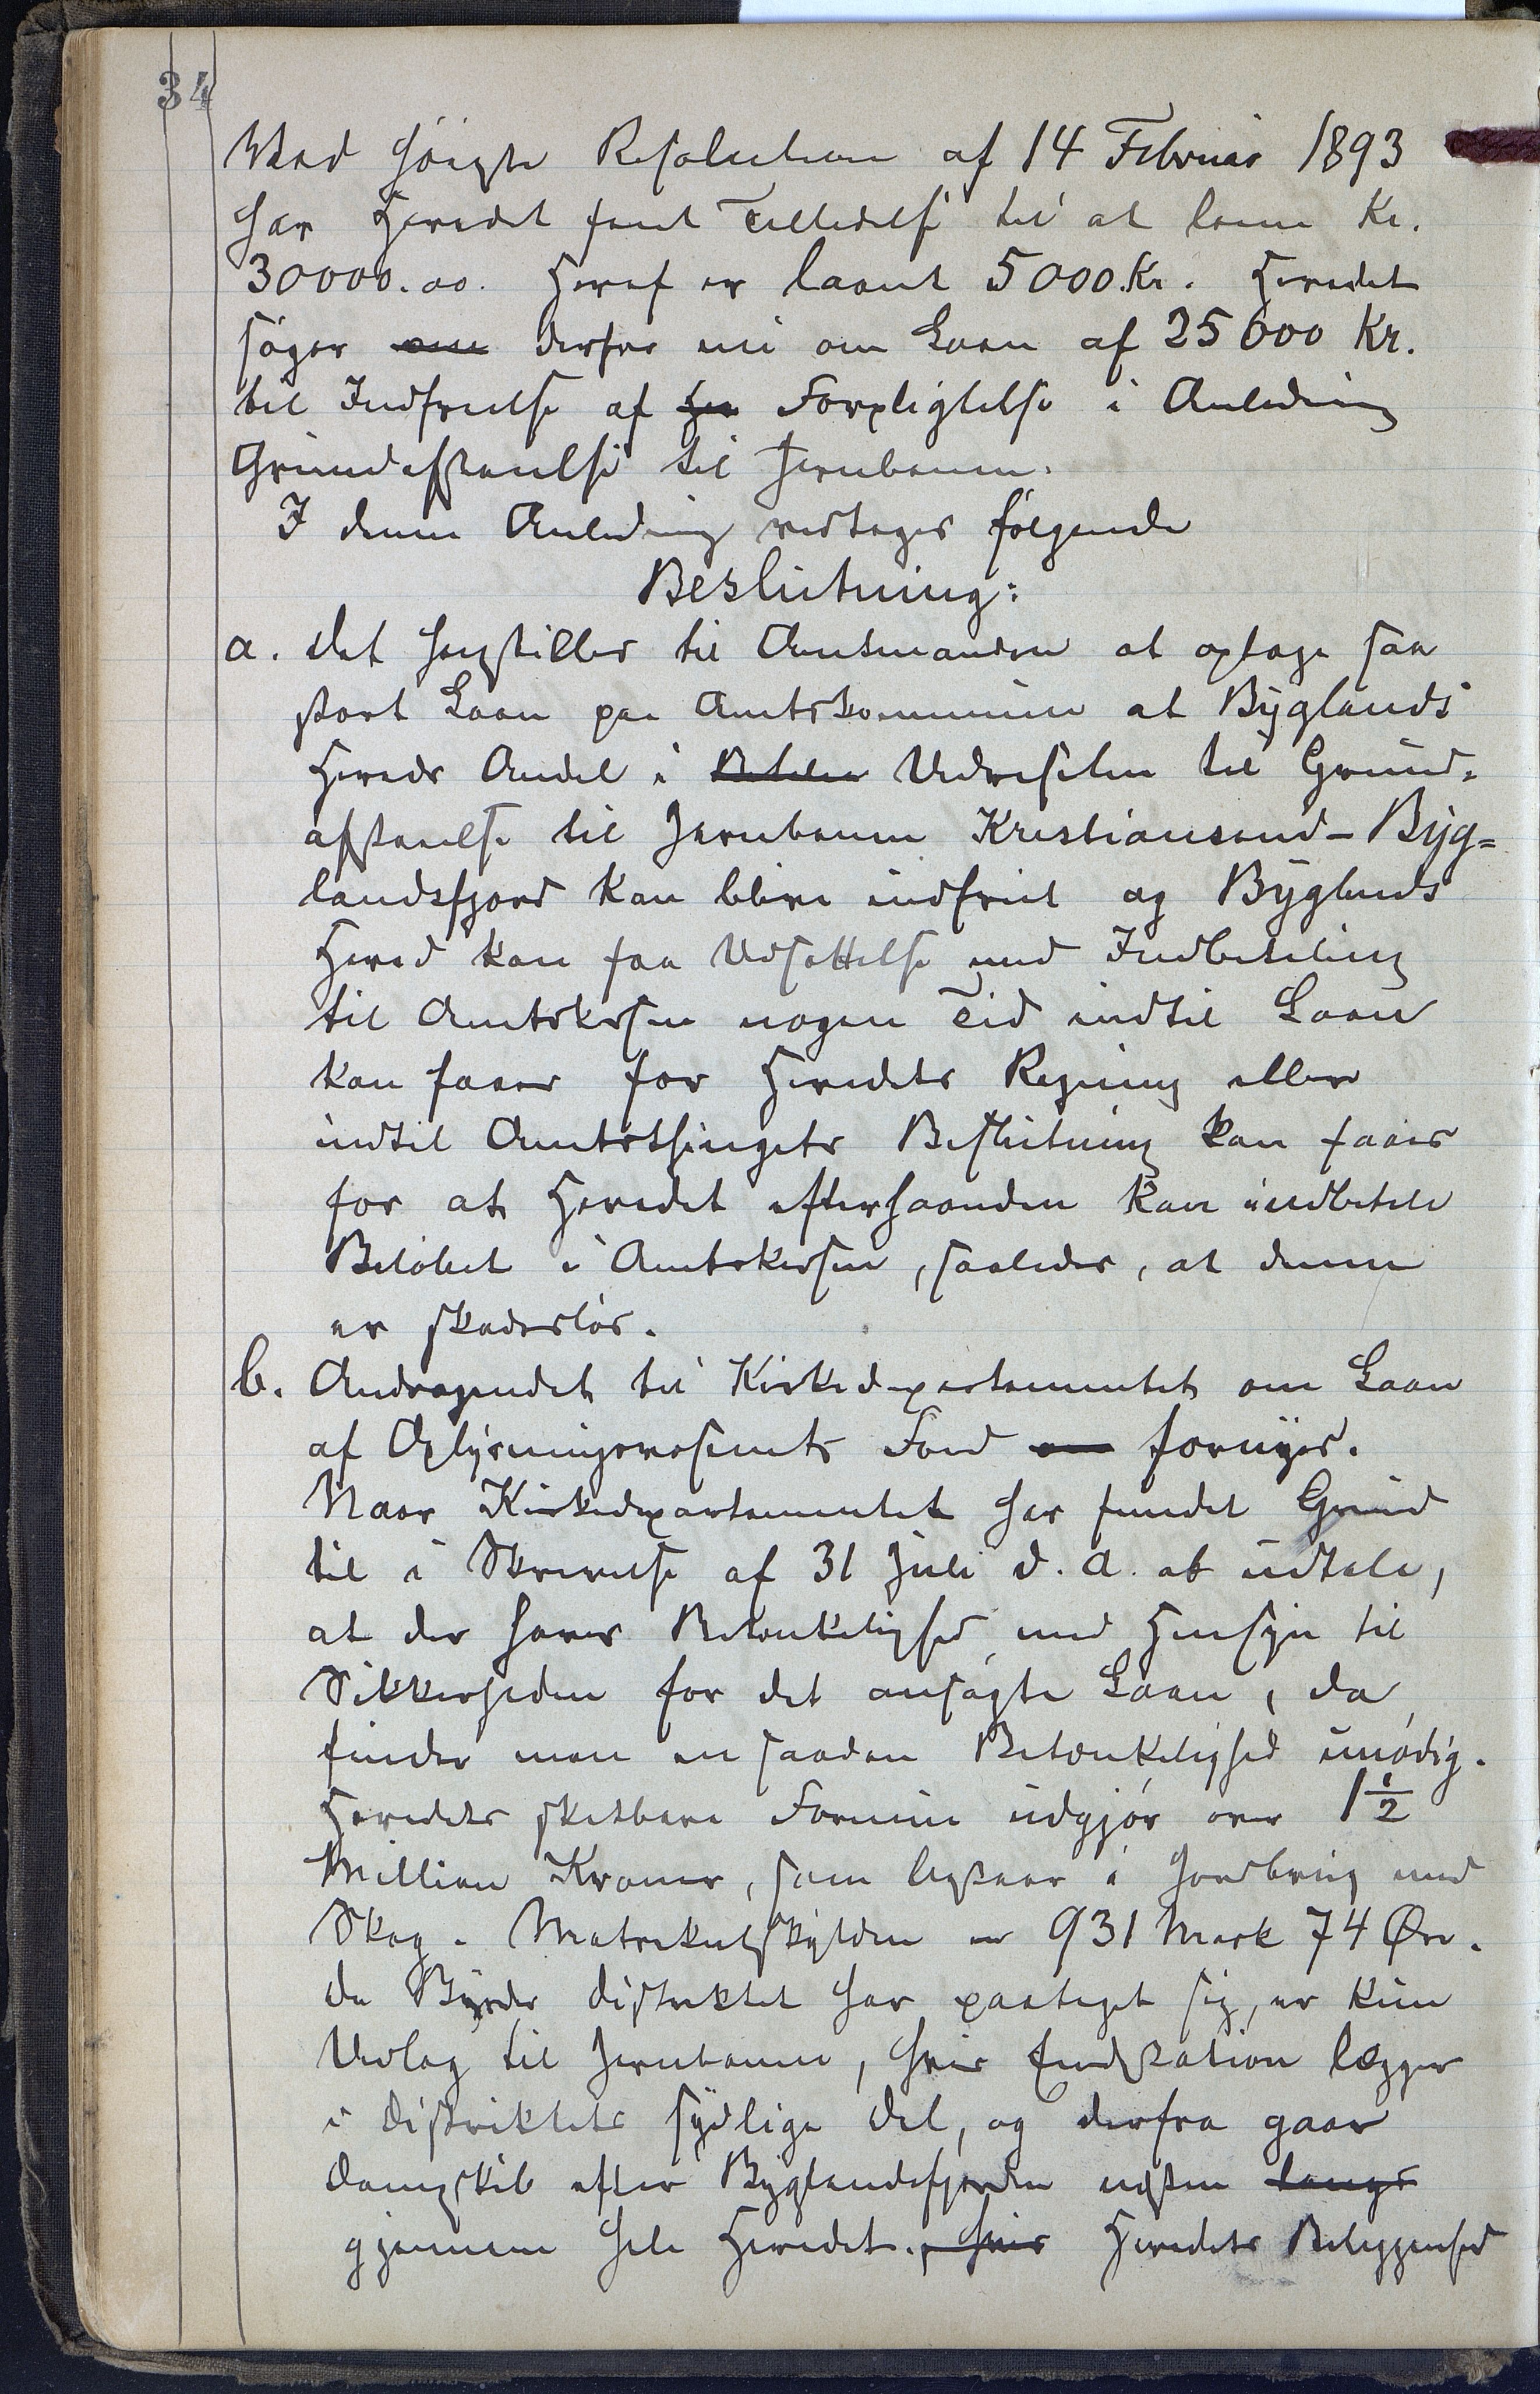 34
Med høigste Resolution af 14 Februar 1893
har Heredet faaet Tilladelse til at laane Kr.
30000.00. Heraf er laant 5000 Kr. Heredet
søger om derfor nu om Laan af 25000 Kr.
til Indfrielse af sin Forpligtelse i Anledning
Grundafstaaelse til Jernbanen.
I denne Anledning vedtages følgende
Beslutning:
a. Det henstilles til Amtmanden at optage saa
stort Laan paa Amtskommunen at Byglands
Hereds Andel i Betalen Udredselen til Grund-
afstaaelse til Jernbanen Kristiansand-Byg=
landsfjord kan blive indfriet og Byglands
Hered kan faa Udsættelse med Indbetaling
til Amtskassen nogen Tid indtil Laan
kan faaes for Heredets Regning eller
indtil Amtsthingets Beslutning kan faaes
for at Heredet efterhaanden kan indbetale
Beløbet i Amtskassen, saaledes, at denne
er skadesløs.
b. Andragendet til Kirkedepartementet om Laan
af Oplysningsvæsenets Fond fornyes.
Naar Kirkedepartementet har fundet Grund
til i Skrivelse af 31 Juli d. A. at udtale,
at der haves Betænkelighed med Hensyn til
Sikkerheden for det ansøgte Laan, da
finder man en saadan Betænkelighed unødig.
Heredets skatbare Formue udgjør over 1 1/2
Million Kroner, som bestaar i Jordbrug med
Skog. Matrikulskylden er 931 Mark 74 Øre.
De Byrder Distriktet har paataget sig, er kun
Udlæg til Jernbanen, hvis Endestation lægges
i Distriktets sydlige Del, og derfra gaar
Dampskib efter Byglandsfjorden næsten langs
gjennem hele Heredet., hvis Heredets Beliggenhed